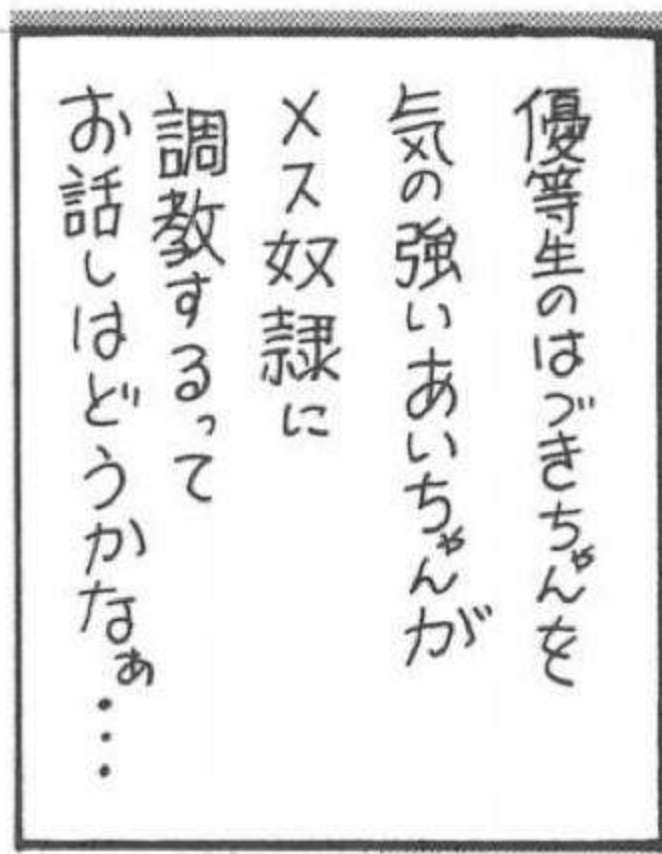 優等生のはづきちゃんを
気の強いあいちゃんが
メス奴隷に
調教するって
お話しはどうかなぁ…